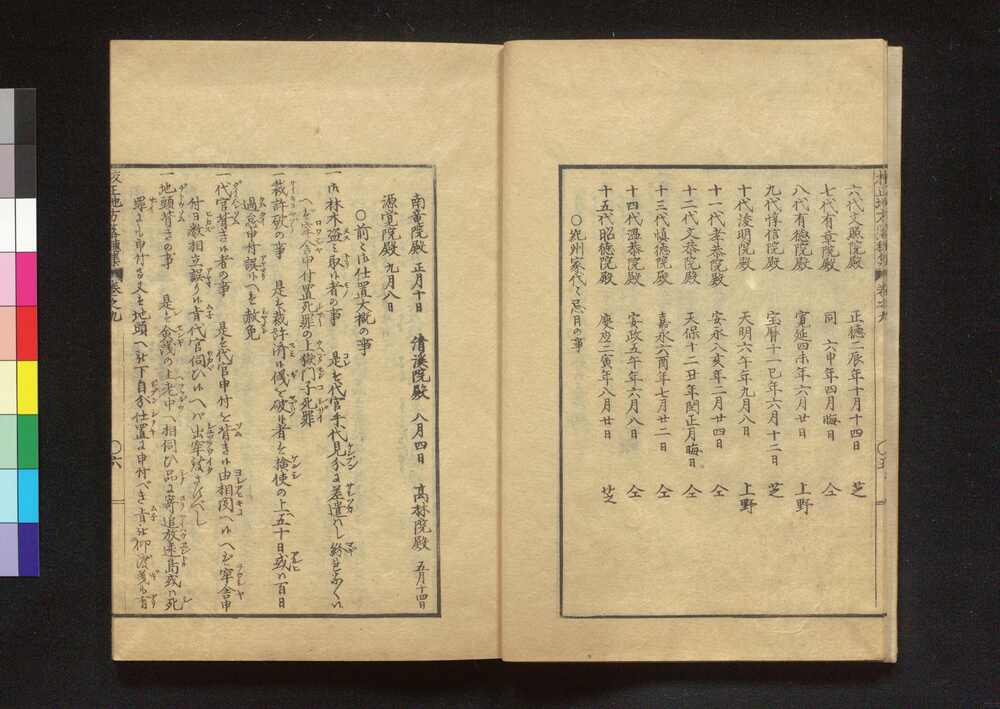 六代文照院殿 正徳二辰年十月十四日 芝
七代有章院殿 同 六申年四月晦日 仝
八代有徳院殿 寛延四未年六月廿日 上野
九代惇信院殿 宝暦十一巳年六月十二日 芝
十代浚明院殿 天明六午年九月八日 上野
十一代孝恭院殿 安永八亥年二月廿四日 仝
十二代文恭院殿 天保十二丑年閏正月晦日 仝
十三代慎徳院殿 嘉永六酉年七月廿二日 仝
十四代温恭院殿 安政五午年六月八日 仝
十五代昭徳院殿 慶应二寅年八月廿日 芝
○紀州家代々忌月の事
南竜院殿 正月十日 清溪院殿 八月四日 高林院殿 五月十四日
源堂院殿 九月八日
○前々御仕置大概の事
一御林木盗ミ取り候者の事 是ハ代官手代見分に差遣ハし紛れなく
ヘバ牢舎申付置死罪の上獄門 死罪
一裁許破の事 是ハ裁許済候儀を破り候者を検使の上五十日或ハ百日
過怠申付誤りヘバ赦免
一代官背き候者の事 是ハ代官申付を背き候由相聞ヘバ牢舎申
付日数相立誤り候旨代官伺ひ候ヘバ出牢
一地頭背きの事 是ハ金銭の上老中ヘ相伺ひ品に寄追放遠島或ハ死
罪にも申付る又も地頭ヘ 下自分仕置に申付べき旨 仰 旨
校正地方落穂集 巻之九 ○六